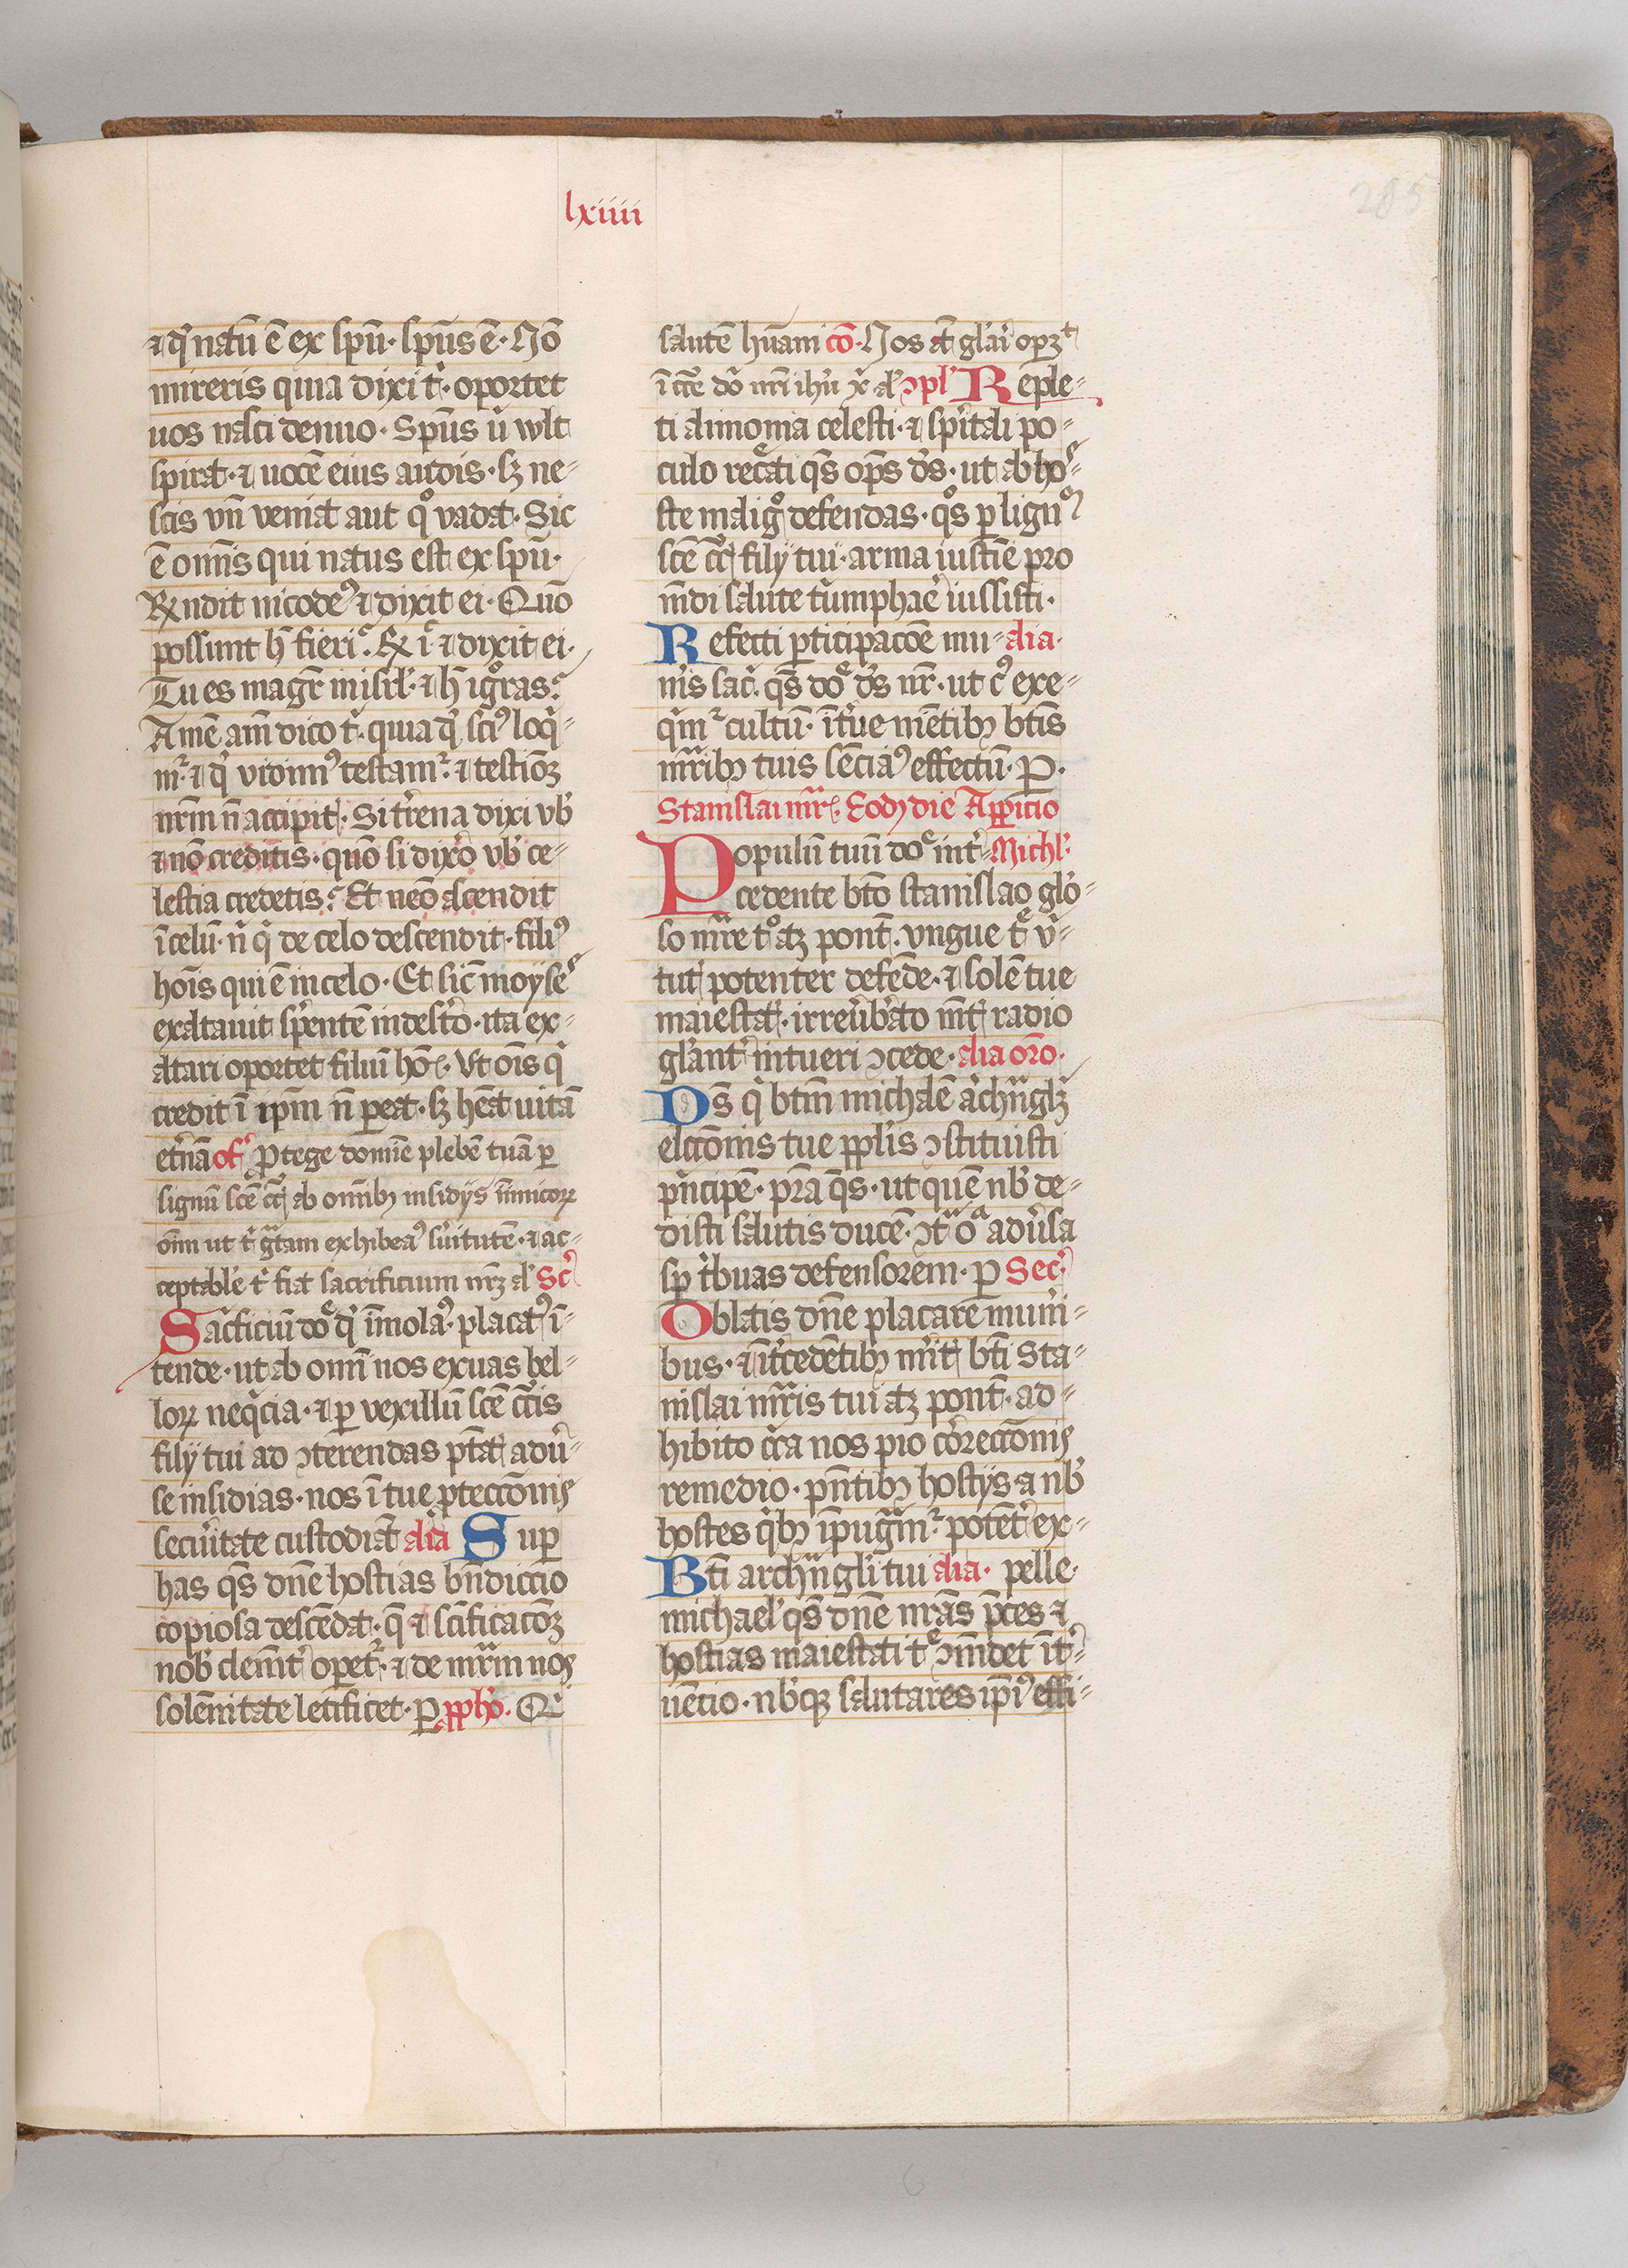 lxiiii
285
⁊ qd natū ē ex spū · spūs ē · Nō
mireris quia dixi t̄ · oportet
uos nasci denuo · Spūs ū wlt
spirat · ⁊ uocē eius audis · sꝫ ne=
scis vn̄ veniat aut qͦ vadat · Sic
ē om̄is qui natus est ex spū ·
Rx̄ndit nicodeꝰ ⁊ dixit ei · Quō
possunt h̄ fieri · Rx̄ ī ⁊ dixit ei ·
Tu es magr̄ in isrl̓ · ⁊ h̄ igͦras ·
Amē am̄ dico t̄ · quia qd̓ sciꝰ loqͥ=
mr᷑ · ⁊ qd̓ vidimꝰ testamr᷑ · ⁊ testiōꝫ
nr̄m n̄ accipit᷒ · Si tr̓rena dixi vb̓
⁊ nō creditis · quō si dixo᷑ vb̓ ce=
lestia credetis · Et neō ascendit
ī celū · n̄ qͥ de celo descendit · filiꝰ
hoīs qui ē in celo · Et sic̄ moyses
exaltauit sp̓entē in desr̓to · ita ex=
altari oportet filiū hoī᷒ · Vt oīs qͥ
credit ī ip̄m n̄ ꝑeat · sꝫ heāt uitā
et̓nā of̓ Ꝓtege domīe plebē tuā ꝑ
signū scē cᷓc᷒ ab omībꝫ insidijs inīmicoꝝ
oīm ut t̓ gᷓtam exhibeaꝰ s̓uitutē · ⁊ ac=
ceptabile t̓ fiat sacrificium nr̄ꝫ al̓ Sc̓
Sacͥficiū doͤ qd̓ īmolaꝰ · placatꝰ ī=
tende · ut ab omī nos exuas bel=
loꝝ neqͥcia · ⁊ ꝑ vexillū scē cᷓcis
filij tui ad ꝯterendas ptāt᷒ adu̓=
se insidias · nos ī tue ꝓteccōnis
secu̓itate custodiat alia Suꝑ
has qs̄ dn̄e hostias bn̄diccio
copiosa descēdat · qͤ ⁊ sc̄ificacōꝫ
nob̓ clemt̓ operet᷑ · ⁊ de mr̄m nos
solēnitate letificet · P ꝓpho᷑ · Qͥ
salutē hūani cō · Nos at̄ gl̓ari opꝫᵗ
ī cͨe dͦ nr̄i ih̓u x̓ al̓ ꝯpl̓ Reple=
ti alimonia celesti · ⁊ spīt̓ali po=
culo rec̓ati qs̄ op̄s ds̄ · ut ab ho=
ste maligͦ defendas · qͦs ꝑ lignū
scē cᷓc᷒ filij tui · arma iustīe pro
mūdi salute t̓umphae̓ iussisti ·
Refecti ꝑticipacōe mu= alia ·
nīs sac̓ · qs̄ doͤ ds̄ nr̄ · ut cꝰ exe=
qͥmr᷑ cultū · īt̓ueniētibꝫ btīs
mᷓribꝫ tuis sēciaꝰ effectū · P ·
Stanislai mr̄᷒ · Eodꝫ die Apꝑicio
Populū tuū doͤ int̓= Michl̓
cedente btō stanislao glo᷑=
so mᷓre tͦ atꝫ pont̄ · vngue tͤ v̓=
tut᷒ potenter defēde · ⁊ solē tue
maiestat᷒ · irreu̓bato mt̄᷒ radio
gl̓ant̓ intueri ꝯcede · alia oro ·
Ds̄ qͥ btm̄ michalē archn̄glꝫ
elccōnis tue ppl̓is ꝯstituisti
pͥncipē · pr̄a qs̄ · ut quē nb̓ de=
disti salutis ducē · ꝯtᷓ oᷓ adu̓sa
sp t̓buas defensorem · P Sec̓
Oblatis dn̄e placare mun̓i=
bus · ⁊ īt̓cedētibꝫ mr̓it᷒ bt̄i Sta=
nislai mᷓris tui atꝫ pont̄ · ad=
hibito cͥca nos pio co᷑reccōnis
remedio · pn̄tibꝫ hostijs · a nb̓
hostes qͥbꝫ īpugᷓmr᷑ · potēt̓ ex=
Bt̄i archn̄gli tui alia · pelle ·
michael̓ qs̄ dn̄e nr̄as pͤces ⁊
hostias maiestati tͤ ꝯmēdet īt̓=
uēcio · nb̓qꝫ salutares ip̄iꝰ effi=